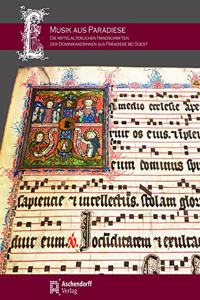 Musik aus Paradiese
Die mittelalterlichen Handschriften
der Dominikanerinnen aus Paradiese bei Soest
In medio ecclesie ape
os eius. et imple
eum dominus spiri
Sapiencie et intellectus. stolam glori
duit eum. Jocunditatem et exultac
Aschendorff
Verlag